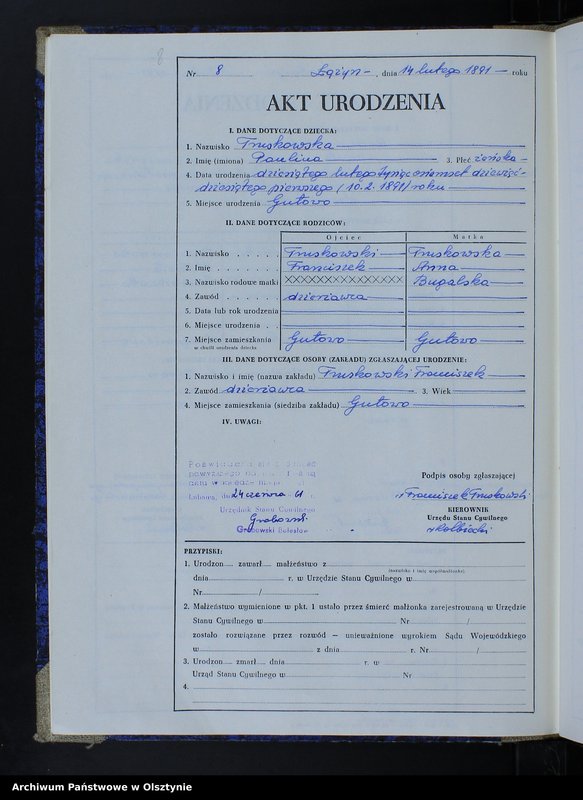 8
Nr 8 Łążyn – , dnia 14 lutego 1891 – roku
AKT URODZENIA
I. DANE DOTYCZĄCE DZIECKA:
1. Nazwisko Truskowska
2. Imię (imiona) Paulina 3. Płeć żeńska
4. Data urodzenia dziesiątego lutego tysiąc osiemset dziewięć-
dziesiątego pierwszego / 10.2.1891 / roku
5. Miejsce urodzenia Gutowo
II. DANE DOTYCZĄCE RODZICÓW:
Ojciec Matka
1. Nazwisko Truskowski Truskowska
2. Imię Franciszek Anna
3. Nazwisko rodowe matki XXXXXXXXXXXXXXXX Bugalska
4. Zawód dzierżawca
5. Data lub rok urodzenia
6. Miejsce urodzenia
7. Miejsce zamieszkania Gutowo Gutowo
w chwili urodzenia dziecka
III. DANE DOTYCZĄCE OSOBY (ZAKŁADU) ZGŁASZAJĄCEJ URODZENIE:
1. Nazwisko i imię (nazwa zakładu) Truskowski Franciszek
2. Zawód dzierżawca 3. Wiek
4. Miejsce zamieszkania (siedziba zakładu) Gutowo
IV. UWAGI:
Poświadcza się zgodność
powyższego odpisu z treścią
aktu w księdze
Łubowa, dn. 24 czerwca 61 r.
Urzędnik Stanu Cywilnego
Grabowski
Grabowski Bolesław
Podpis osoby zgłaszającej
Franciszek Truskowski
KIEROWNIK
Urzędu Stanu Cywilnego
PRZYPISKI:
1. Urodzon zawarł małżeństwo z
(nazwisko i imię współmałżonka)
dnia r. w Urzędzie Stanu Cywilnego w
Nr /
2. Małżeństwo wymienione w pkt. 1 ustało przez śmierć małżonka zarejestrowaną w Urzędzie
Stanu Cywilnego w Nr /
zostało rozwiązane przez rozwód – unieważnione wyrokiem Sądu Wojewódzkiego
w z dnia r. Nr /
3. Urodzon zmarł dnia r. w
Urząd Stanu Cywilnego w Nr
4.
Archiwum Państwowe w Olsztynie